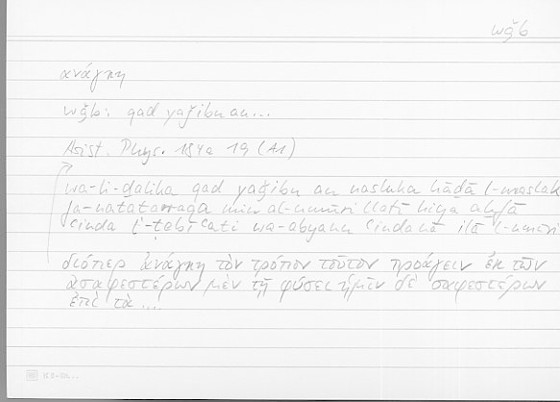 wǧb
ἀνάγκη
wǧb: qad yaǧibu an...
Arist. Phys. 184a 19 (A1)
wa-li-ḏālika qad yaǧibu an nasluka hāḏā l-maslak
fa-natatarraqa min al-umūri llatī hiya aḫfā
ʿinda l-ṭabīʿati wa-abyanu ʿindanā ilā l-umūri
διόπερ ἀνάγκη τὸν τρόπον τοῦτον προάγειν ἐκ τῶν
ἀσαφεστέρων μὲν τῇ φύσει ἡμῖν δὲ σαφεστέρων
ἐπὶ τὰ ....